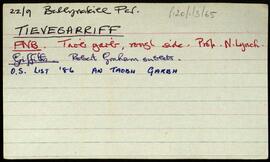 22/9 Ballynakill Par. 120/13/65
TIEVEGARRIFF
FNB. Taobh garbh, rough side. Prop. N. Lynch.
Griffith Robert Graham sublets.
O.S. LIST '86 AN TAOBH GARBH